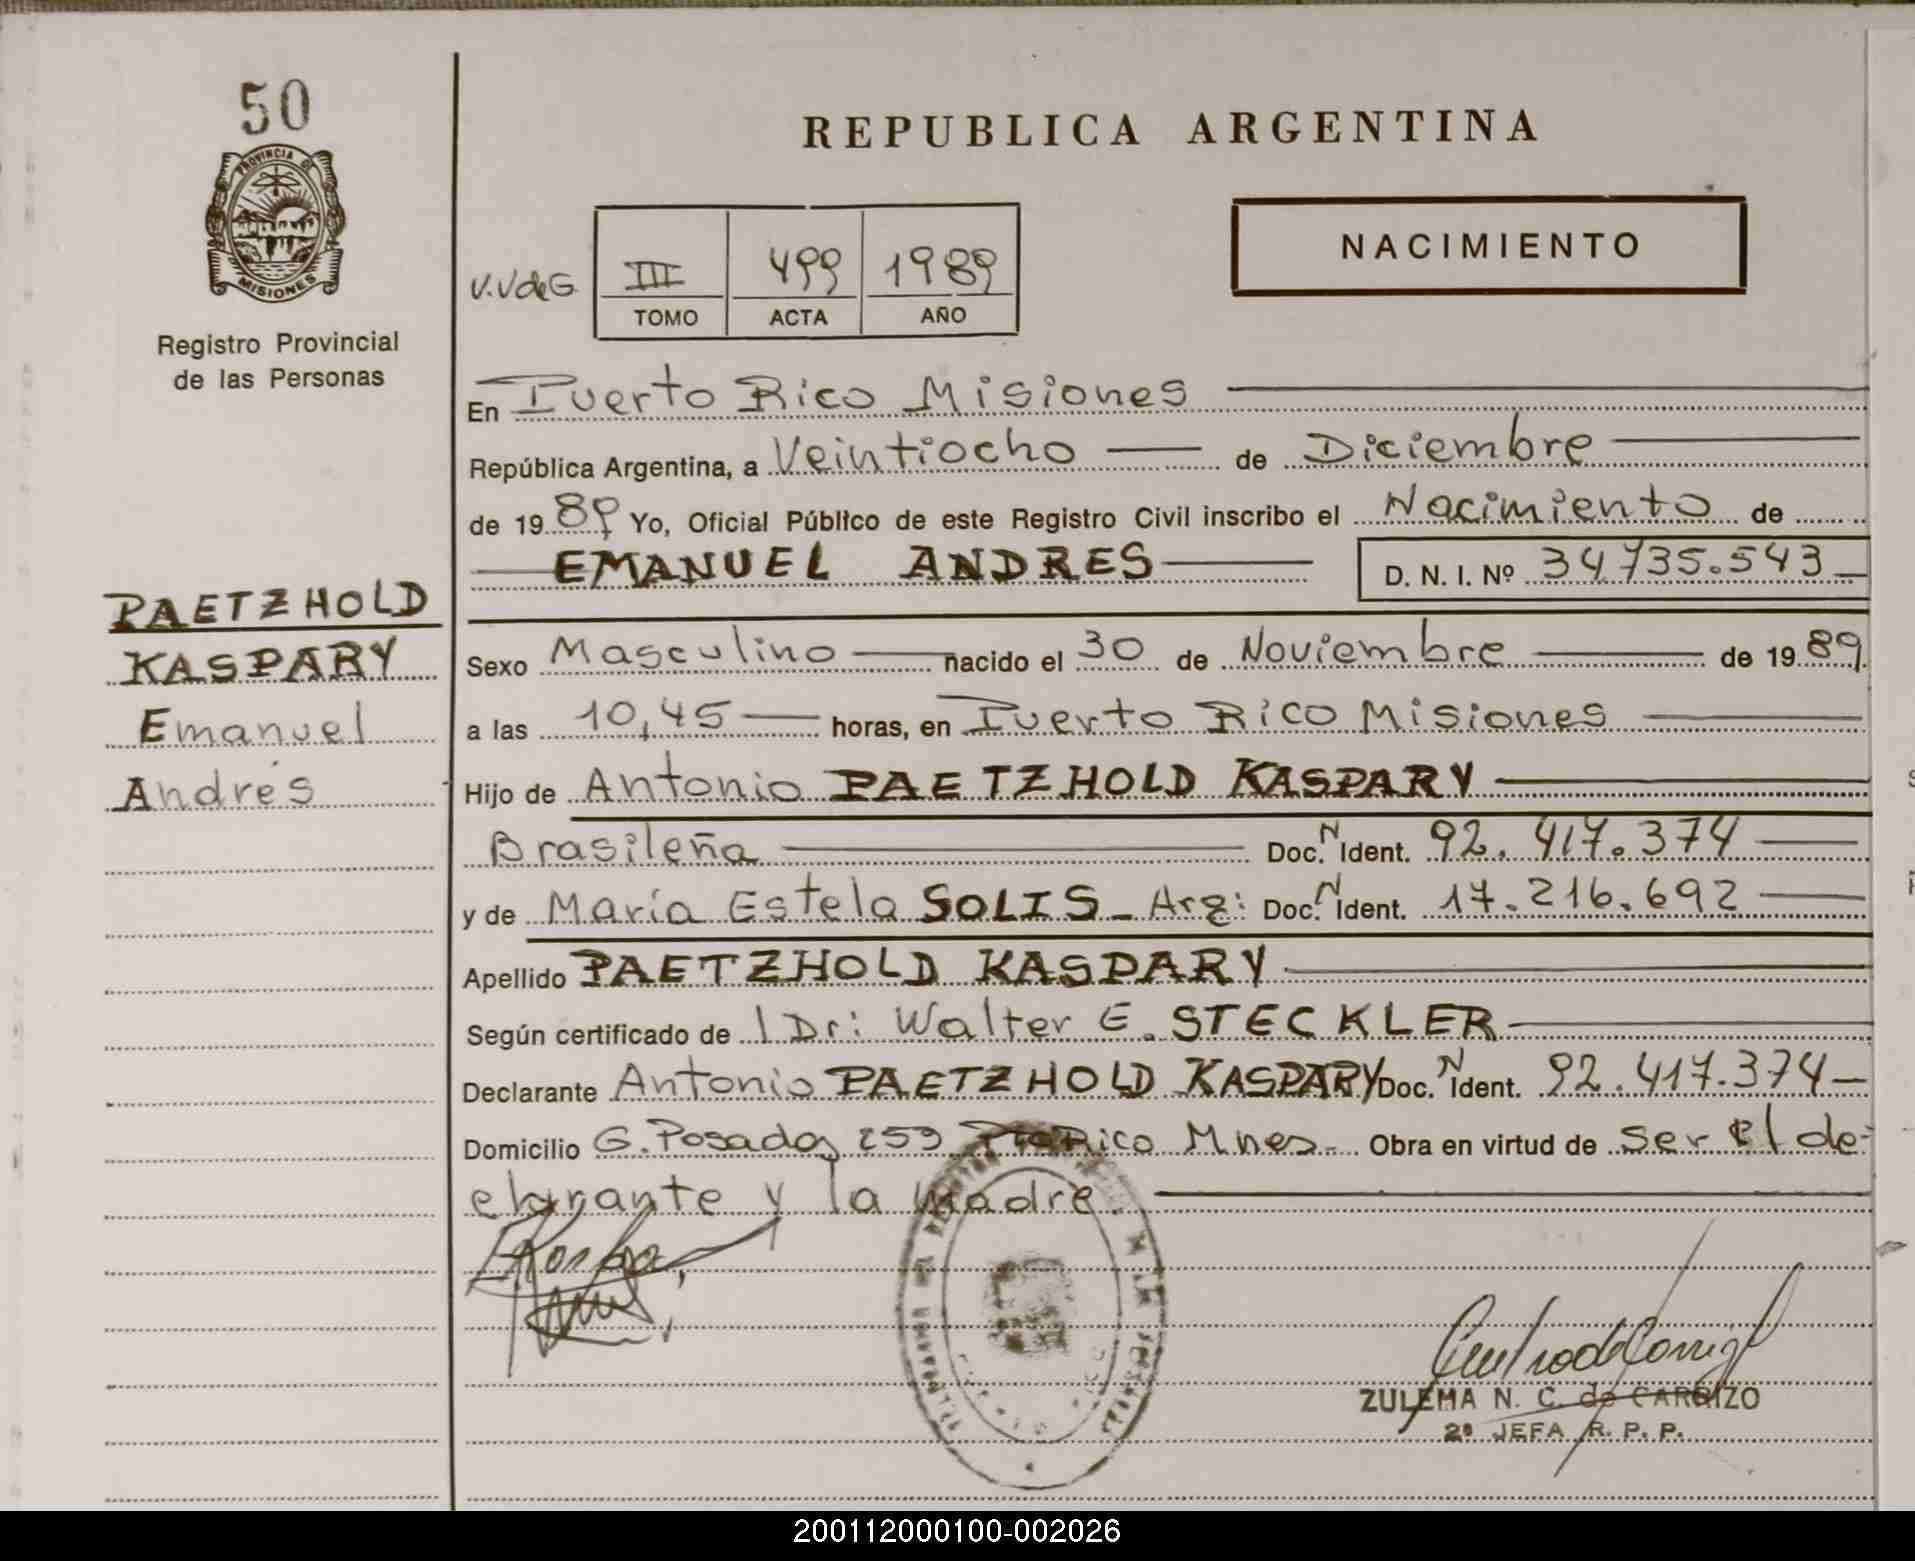 50
PROVINCIA DE
MISIONES
Registro Provincial
de las Personas
PAETZHOLD
KASPARY
Emanuel
Andrés
REPUBLICA ARGENTINA
NACIMIENTO
V.V de G.
III 499 1989
TOMO ACTA AÑO
En Puerto Rico Misiones
República Argentina, a Veintiocho de Diciembre
de 1989 Yo, Oficial Público de este Registro Civil inscribo el Nacimiento de
EMANUEL ANDRES D. N. I. Nº 34735.543
Sexo Masculino nacido el 30 de Noviembre de 1989
a las 10,45 horas, en Puerto Rico Misiones
Hijo de Antonio PAETZHOLD KASPARY
Brasileña Doc. N Ident. 92.417.374
y de María Estela SOLIS - Arg: Doc. N Ident. 17.216.692
Apellido PAETZHOLD KASPARY
Según certificado de l Dr: Walter E. STECKLER
Declarante Antonio PAETZHOLD KASPARY Doc. N Ident. 92.417.374
Domicilio G. Posadas 259 Pto Rico Mnes. Obra en virtud de ser el de-
clarante y la madre.
ZULEMA N. C. de CARRIZO
2ª JEFA R. P. P.
200112000100-002026